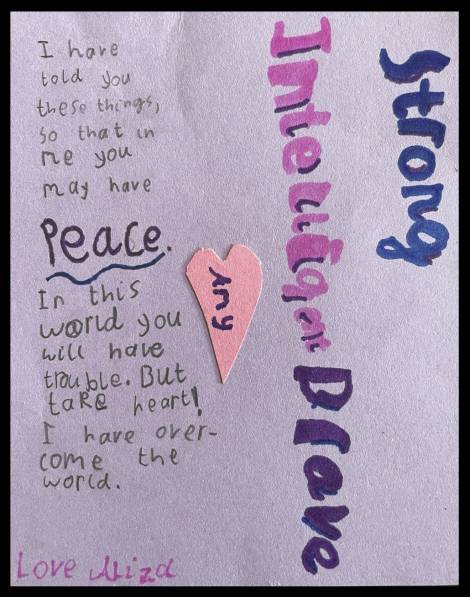 I have
told you
these things,
so that in
me you
may have
Peace.
In this
world you
will have
trouble. But
take heart!
I have over-
come the
world.
Love Aliza
Amy
Strong
Intelligent
Brave